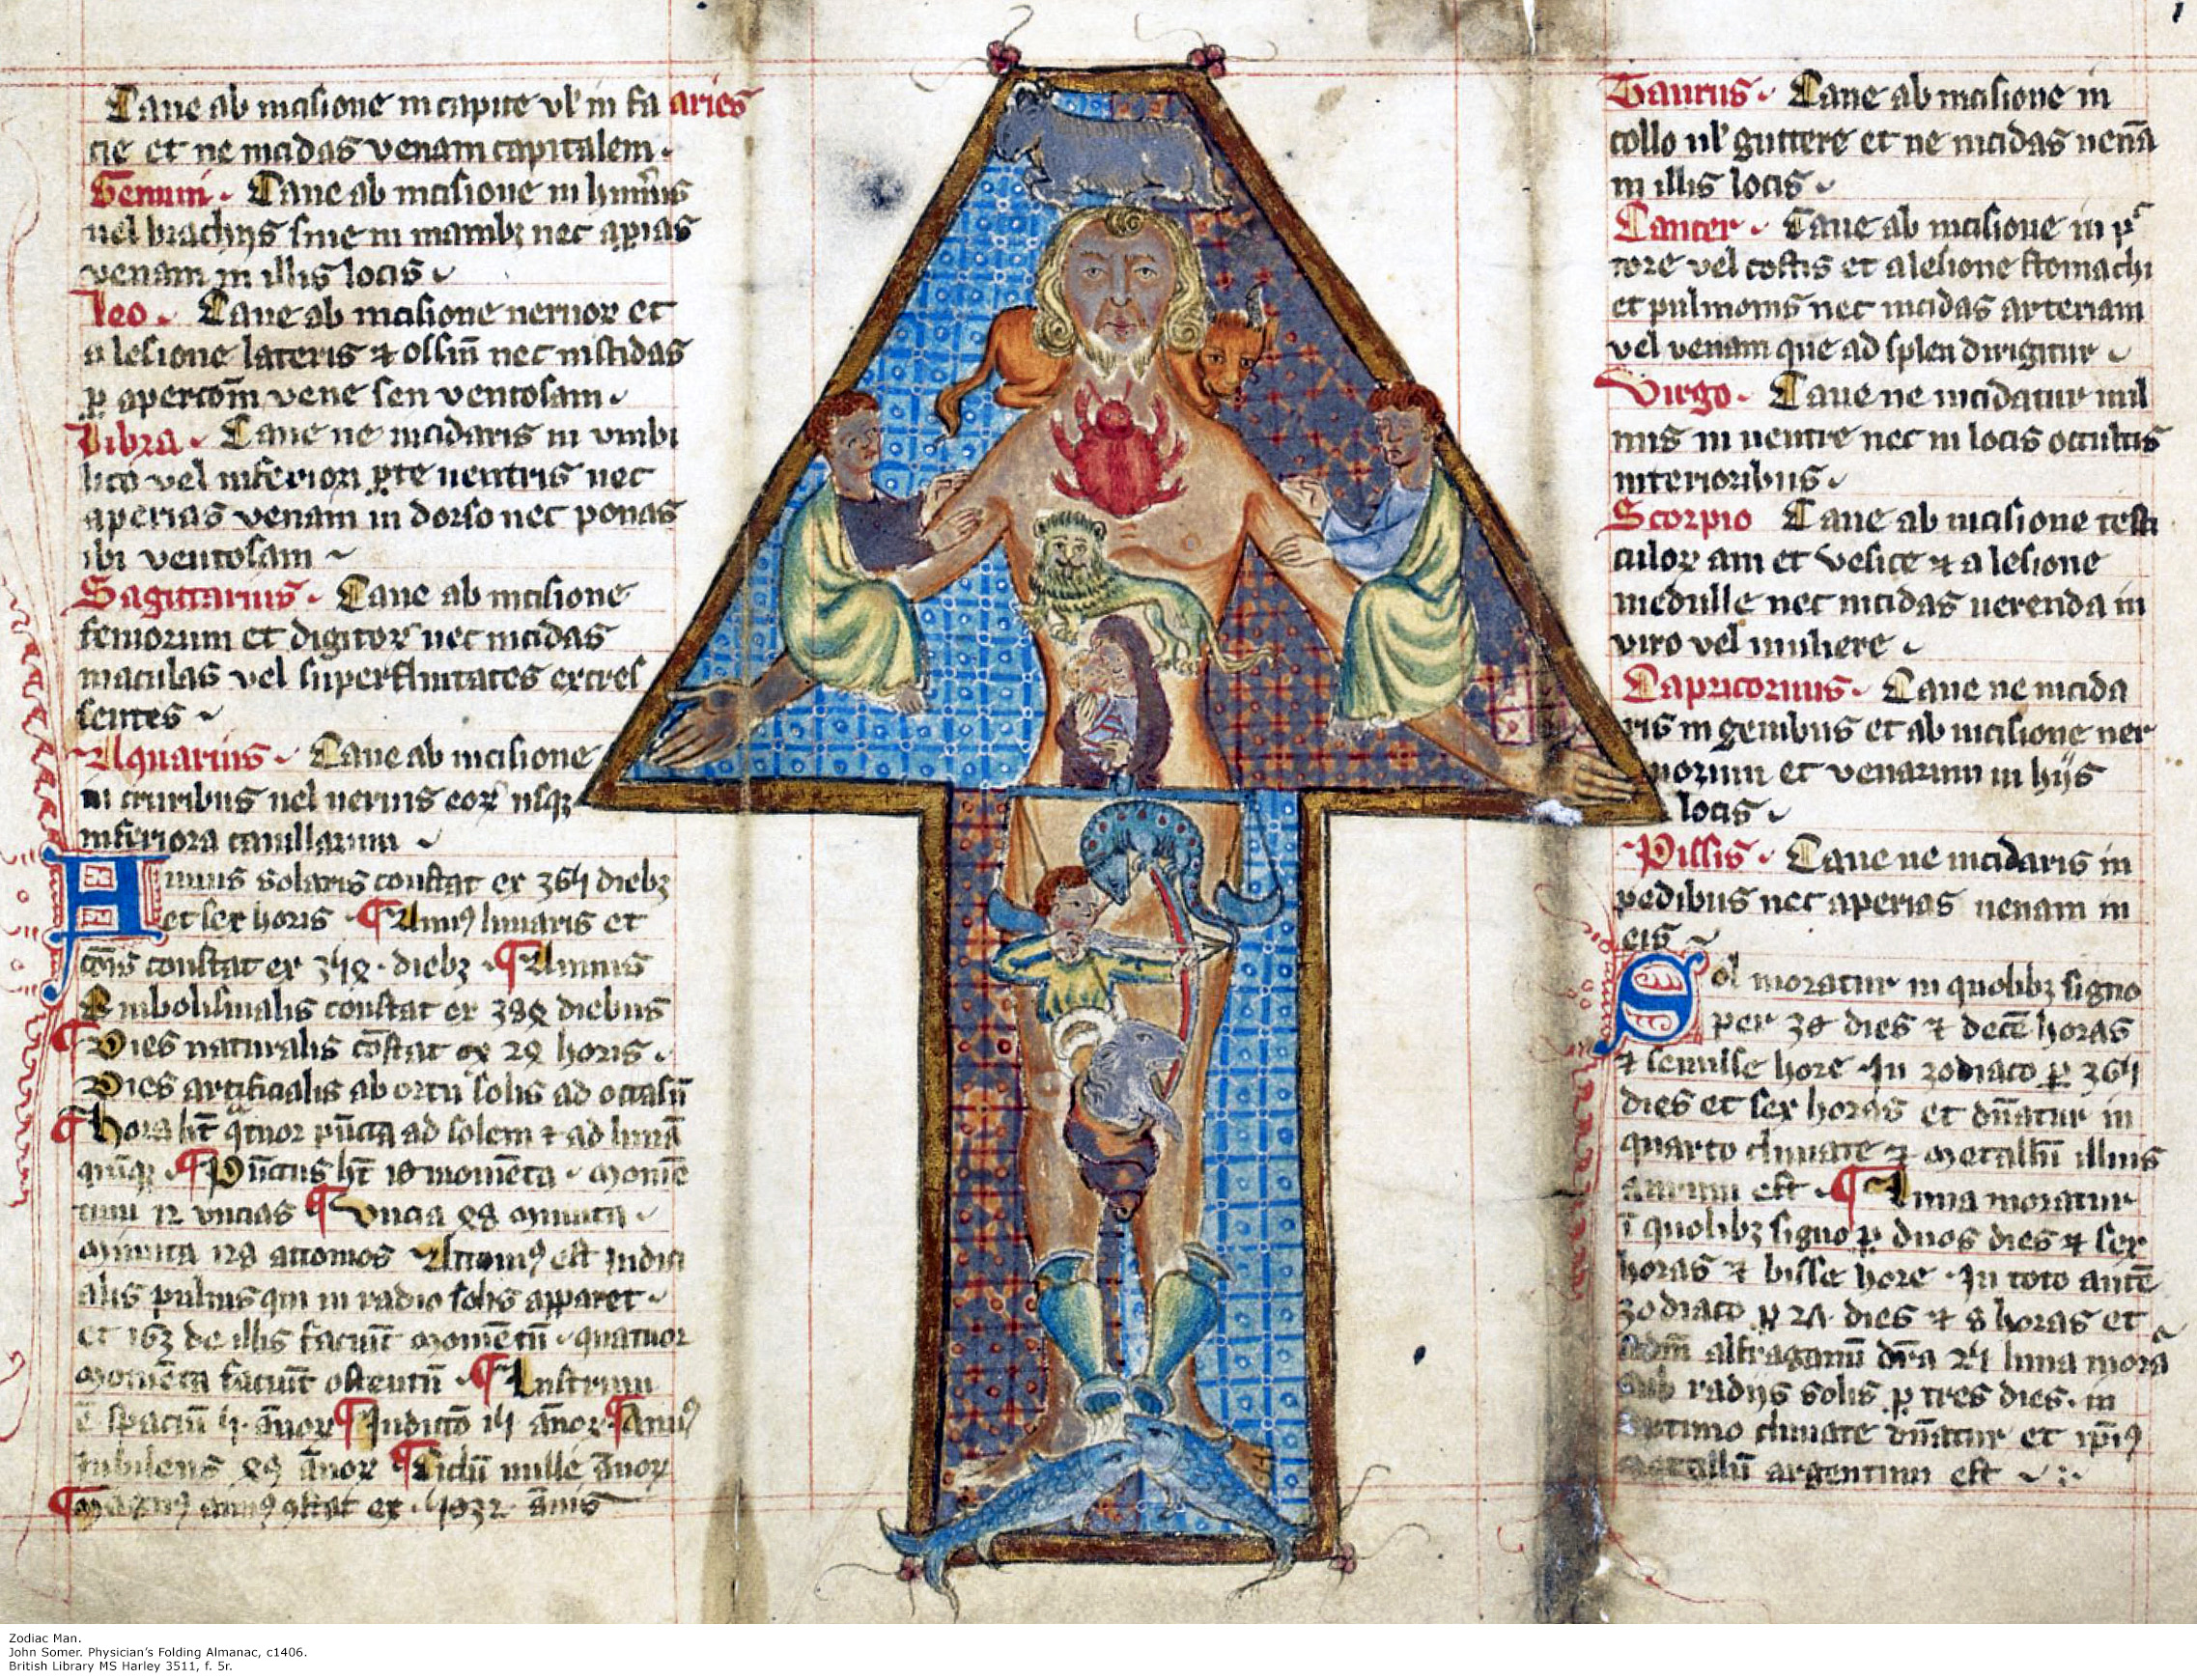 Caue ab incisione in capite vl' in fa aries
cie et ne incidas venam capitalem.
Gemini. Caue ab incisione in hum̄is
uel brachijs siue in manibȝ nec apias
venam in illis locis
Leo. Caue ab incisione neruoꝝ et
a lesione lateris ⁊ ossiū nec nistidas
ꝑ apercōm vene seu ventosam
Libra. Caue ne incidaris in vmbi
lico vel inferiori ꝑte uentris nec
aperias venam in dorso nec ponas
ibi ventosam
Sagittarius. Caue ab incisione
femorum et digitoꝝ nec incidas
maculas vel superfluitates excres
sentes
Aquarius. Caue ab incisione
in cruribus uel neruis eoꝝ usqȝ
inferiora cauillarum
Annus solaris constat ex 365 diebȝ
et sex horis ¶ Annꝰ lunaris et
cōis constat ex 354 diebȝ ¶ Annus
Embolismalis constat ex 384 diebus
¶ Dies naturalis cōstat ex 24 horis.
Dies artificialis ab ortu solis ad occasū
¶ Hora ht̄ qͣtuor pūcta ad solem ⁊ ad lunā
¶ Pūctus ht̄ 10 momēta. Momē
tum 12 vncias ¶ Vncia 48 minuta
minuta 128 attomos Attomꝰ est indiui
alis puluis qui in radio solis apparet
et de illis faciūt momētū. quatuor
momēta faciūt ostentū ¶ Lustrum
ē spaciū 5 ānoꝝ ¶ Indictō 15 ānoꝝ ¶ Annꝰ
Iubileus ānoꝝ ¶ Ciclū mille ānoꝝ
¶ Magnꝰ annꝰ ex annis
Taurus. Caue ab incisione in
collo ul' gutture et ne incidas uenā
in illis locis
Cancer. Caue ab incisione in pͨ
tore vel costis et a lesione stomachi
et pulmonis nec incidas arteriam
vel venam que ad splen dirigitur
Virgo. Caue ne incidatur uul
nus in uentre nec in locis occultis
interioribus
Scorpio Caue ab incisione testi
culoꝝ am et vesice ⁊ a lesione
medulle nec incidas uerenda in
viro vel muliere
Capricornus. Caue ne incida
ris in genibus et ab incisione ner
uorum et venarum in hijs
locis
Pissis. Caue ne incidaris in
pedibus nec aperias uenam in
eis
Sol moratur in quolibȝ signo
per 30 dies ⁊ decē horas
⁊ semisse hore. In zodiaco ꝑ 365
dies et sex horas et dn̄atur in
quarto climate ⁊ metallū illius
aurum est. ¶ Luna moratur
ī quolibȝ signo ꝑ duos dies ⁊ sex
horas ⁊ bisse hore. In toto autē
zodiaco ꝑ 27 dies ⁊ 8 horas et
alfraganū luna mora
sub radijs solis ꝑ tres dies. in
septimo climate dn̄atur et ipīꝰ
metallū argentum est
Zodiac Man.
John Somer. Physician's Folding Almanac, c1406.
British Library MS Harley 3511, f. 5r.